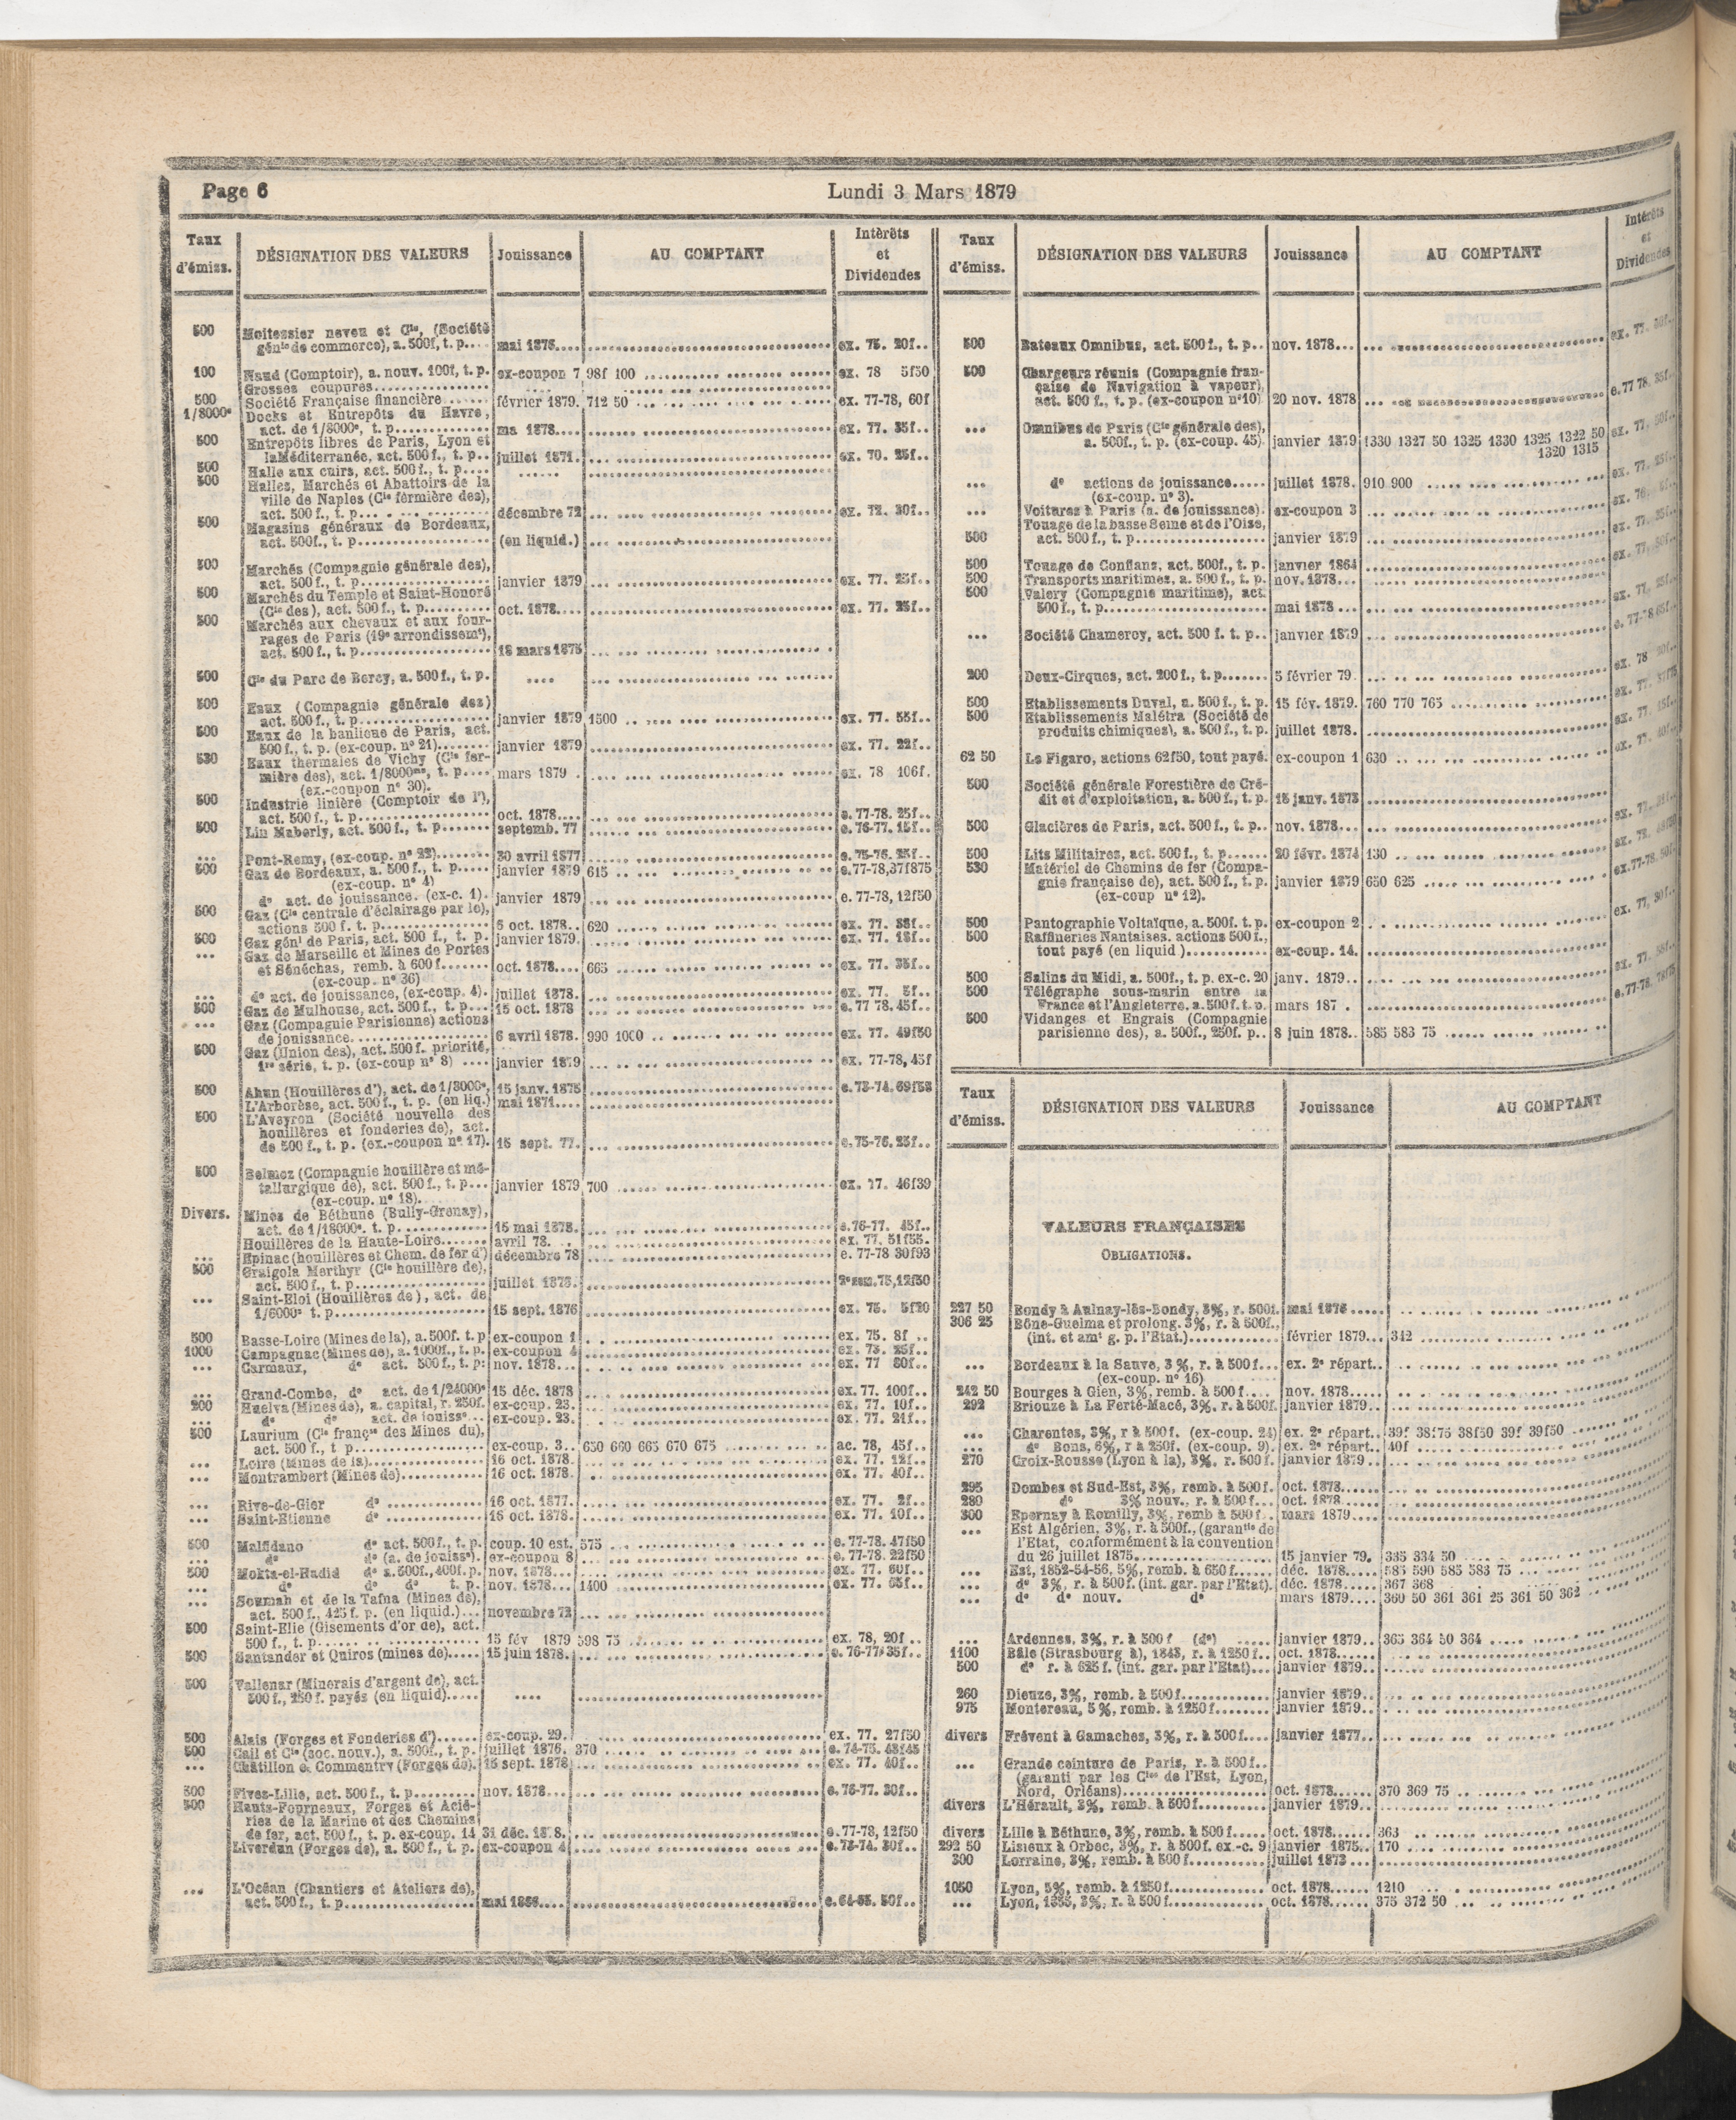 Page 6
Lundi 3 Mars 1879
Taux d'émiss. DÉSIGNATION DES VALEURS Jouissance AU COMPTANT Intérêts et Dividendes
500 Moitessier neveu et Cie, (Société
génle de commerce), a. 500f, t. p.... mai 1876.... ex. 75. 20f..
100 Naud (Comptoir), a. nouv. 100f, t. p. ex-coupon 7 98f 100 ex. 78 5f50
Grosses coupures
500 Société Française financière février 1879. 712 50 ex. 77-78, 60f
1/8000e Docks et Entrepôts du Havre,
act. de 1/8000e, t. p. ma 1878.... ex. 77. 35f..
500 Entrepôts libres de Paris, Lyon et
la Méditerranée, act. 500 f., t. p.. juillet 1871. ex. 70. 25f..
500 Halle aux cuirs, act. 500 f., t. p....
500 Halles, Marchés et Abattoirs de la
ville de Naples (Cie fermière des),
act. 500 f., t. p. décembre 72 ex. 72. 30f..
500 Magasins généraux de Bordeaux,
act. 500f., t. p. (en liquid.)
500 Marchés (Compagnie générale des),
act. 500 f., t. p. janvier 1879 ex. 77. 25f..
500 Marchés du Temple et Saint-Honoré
(Cie des), act. 500 f., t. p. oct. 1878.... ex. 77. 25f..
500 Marchés aux chevaux et aux four-
rages de Paris (19e arrondissemt),
act. 500 f., t. p. 18 mars 1875
500 Cie du Parc de Bercy, a. 500 f., t. p. ....
500 Eaux (Compagnie générale des)
act. 500 f., t. p. janvier 1879 1500 ex. 77. 55f..
500 Eaux de la banlieue de Paris, act.
500 f., t. p. (ex-coup. n° 21) janvier 1879 ex. 77. 22f..
530 Eaux thermales de Vichy (Cie fer-
mière des), act. 1/8000me, t. p.... mars 1879 . ex. 78 106f.
(ex.-coupon n° 30).
500 Industrie linière (Comptoir de l'),
act. 500 f., t. p. oct. 1878.... e. 77-78. 25f..
500 Lin Maberly, act. 500 f., t. p. septemb. 77 e. 76-77. 15f..
... Pont-Remy, (ex-coup. n° 22) 30 avril 1877 e. 75-76. 25f..
500 Gaz de Bordeaux, a. 500 f., t. p. janvier 1879 615 e.77-78,37f875
(ex-coup. n° 4)
d° act. de jouissance. (ex-c. 1). janvier 1879 e. 77-78, 12f50
500 Gaz (Cie centrale d'éclairage par le),
actions 500 f. t. p. 5 oct. 1878.. 620 ex. 77. 38f..
500 Gaz génl de Paris, act. 500 f., t. p. janvier 1879. ex. 77. 18f..
... Gaz de Marseille et Mines de Portes
et Sénéchas, remb. à 600 f. oct. 1878.... 665 ex. 77. 35f..
(ex-coup. n° 36)
... d° act. de jouissance, (ex-coup. 4). juillet 1878. ex. 77. 5f..
500 Gaz de Mulhouse, act. 500 f., t. p... 15 oct. 1878 e. 77 78. 45f..
... Gaz (Compagnie Parisienne) actions
de jouissance. 6 avril 1878. 990 1000 ex. 77. 49f50
500 Gaz (Union des), act. 500 f. priorité,
1re série, t. p. (ex-coup n° 8) janvier 1879 ex. 77-78, 45f
500 Ahun (Houillères d'), act. de 1/8000e, 15 janv. 1875 e. 73-74. 69f58
L'Arborèse, act. 500 f., t. p. (en liq.) mai 1871....
500 L'Aveyron (Société nouvelle des
houillères et fonderies de), act.
de 500 f., t. p. (ex.-coupon n° 17). 15 sept. 77. e. 75-76. 25f..
500 Belmez (Compagnie houillère et mé-
tallurgique de), act. 500 f., t. p... janvier 1879 700 ex. 77. 46f39
(ex-coup. n° 18).
Divers. Mines de Béthune (Bully-Grenay),
act. de 1/18000e. t. p. 15 mai 1878. e.76-77. 45f..
Houillères de la Haute-Loire avril 78. ex. 77. 51f55.
... Epinac (houillères et Chem. de fer d') décembre 78 e. 77-78 30f93
500 Craigola Merthyr (Cie houillère de),
act. 500 f., t. p. juillet 1876. 2e sem. 75, 12f50
... Saint-Eloi (Houillères de), act. de
1/6000e t. p. 15 sept. 1876 ex. 75. 5f20
500 Basse-Loire (Mines de la), a. 500f. t. p ex-coupon 1 ex. 75. 8f ..
1000 Campagnac (Mines de), a. 1000f., t. p. ex-coupon 4 ex. 73. 25f..
... Carmaux, d° act. 500 f., t. p: nov. 1878... ex. 77 30f..
... Grand-Combe, d° act. de 1/24000e 15 déc. 1878 ex. 77. 100f..
200 Huelva (Mines de), a. capital, r. 250f. ex-coup. 23. ex. 77. 10f..
... d° d° act. de jouisse... ex-coup. 23. ex. 77. 21f..
500 Laurium (Cie françse des Mines du),
act. 500 f., t p ex-coup. 3.. 650 660 665 670 675 ac. 78, 45f..
... Loire (Mines de la) 16 oct. 1878. ex. 77. 12f..
... Montrambert (Mines de) 16 oct. 1878. ex. 77. 40f..
... Rive-de-Gier d° 16 oct. 1877. ex. 77. 2f..
... Saint-Etienne d° 16 oct. 1878. ex. 77. 10f..
500 Malfidano d° act. 500 f., t. p. coup. 10 est. 575 e. 77-78. 47f50
... d° d° (a. de jouisse). ex-coupon 8 e. 77-78. 22f50
500 Mokta-el-Hadid d° a. 500f., 400f. p. nov. 1878... ex. 77. 60f..
... d° d° d° t. p. nov. 1878... 1400 ex. 77. 65f..
... Soumah et de la Tafna (Mines de),
act. 500 f., 425 f. p. (en liquid.)... novembre 72
500 Saint-Elie (Gisements d'or de), act.
500 f., t. p. 15 fév 1879 598 75 ex. 78, 20f ..
500 Santander et Quiros (mines de) 15 juin 1878. e. 76-77 35f..
500 Vallenar (Minerais d'argent de), act.
500 f., 250 f. payés (en liquid) ....
500 Alais (Forges et Fonderies d') ex-coup. 29. ex. 77. 27f50
500 Cail et Cie (soc. nouv.), a. 500f., t. p. juillet 1876. 370 e. 74-75. 48f45
... Châtillon & Commentry (Forges de). 15 sept. 1878 ex. 77. 40f..
500 Fives-Lille, act. 500 f., t. p. nov. 1878 e. 76-77. 30f..
500 Hauts-Fourneaux, Forges et Acié-
ries de la Marine et des Chemins
de fer, act. 500 f., t. p. ex-coup. 14 31 déc. 18 8. e. 77-78, 12f50
Liverdun (Forges de), a. 500 f., t. p. ex-coupon 4 e. 73-74. 30f..
... L'Océan (Chantiers et Ateliers de),
act. 500 f., t. p. mai 1866.... e. 64-65. 50f..
Taux d'émiss. DÉSIGNATION DES VALEURS Jouissance AU COMPTANT Intérêts et Dividendes
500 Bateaux Omnibus, act. 500 f., t. p.. nov. 1878... ex. 77. 30f..
500 Chargeurs réunis (Compagnie fran-
çaise de Navigation à vapeur),
act. 500 f., t. p. (ex-coupon n°10) 20 nov. 1878 e. 77 78. 35f..
... Omnibus de Paris (Cie générale des),
a. 500f., t. p. (ex-coup. 45) janvier 1879 1330 1327 50 1325 1330 1325 1322 50 ex. 77. 50f..
1320 1315
... d° actions de jouissance..... juillet 1878. 910 900 ex. 77. 25f..
(ex-coup. n° 3).
... Voitures à Paris (a. de jouissance). ex-coupon 3 ex. 76.
Touage de la basse Seine et de l'Oise,
500 act. 500 f., t. p. janvier 1879 ex. 77. 25f..
500 Touage de Conflans, act. 500f., t. p. janvier 1864
500 Transports maritimes, a. 500 f., t. p. nov. 1878...
500 Valery (Compagnie maritime), act.
500 f., t. p. mai 1878 ... ex. 77. 25f..
... Société Chameroy, act. 500 f. t. p.. janvier 1879
200 Deux-Cirques, act. 200 f., t. p. 5 février 79. ex. 78
500 Etablissements Duval, a. 500 f., t. p. 15 fév. 1879. 760 770 765 ex. 77.
500 Etablissements Malétra (Société de
produits chimiques), a. 500 f., t. p. juillet 1878. ex. 77. 15f..
62 50 Le Figaro, actions 62f50, tout payé. ex-coupon 1 630 ex. 77. 40f..
500 Société générale Forestière de Cré-
dit et d'exploitation, a. 500 f., t. p. 15 janv. 1873
500 Glacières de Paris, act. 500 f., t. p.. nov. 1878... ex. 77.
500 Lits Militaires, act. 500 f., t. p. 20 févr. 1874 130 ex. 78.
530 Matériel de Chemins de fer (Compa-
gnie française de), act. 500 f., t. p. janvier 1879 650 625 ex. 77-78. 50f..
(ex-coup n° 12).
500 Pantographie Voltaïque, a. 500f. t. p. ex-coupon 2
500 Raffineries Nantaises. actions 500 f.,
tout payé (en liquid ) ex-coup. 14.
500 Salins du Midi, a. 500f., t. p. ex-c. 20 janv. 1879..
500 Télégraphe sous-marin entre la
France et l'Angleterre, a. 500f. t. p. mars 187 .
500 Vidanges et Engrais (Compagnie
parisienne des), a. 500f., 250f. p.. 8 juin 1878.. 585 583 75
Taux d'émiss. DÉSIGNATION DES VALEURS Jouissance AU COMPTANT
VALEURS FRANÇAISES
OBLIGATIONS.
227 50 Bondy à Aulnay-lès-Bondy, 3%, r. 500f. mai 1876
306 25 Bône-Guelma et prolong. 3%, r. à 500f.,
(int. et amt g. p. l'Etat.) février 1879... 342
... Bordeaux à la Sauve, 3 %, r. à 500 f... ex. 2e répart..
(ex-coup. n° 16)
242 50 Bourges à Gien, 3%, remb. à 500 f.... nov. 1878
292 Briouze à La Ferté-Macé, 3%. r. à 500f. janvier 1879..
... Charentes, 3%, r à 500 f. (ex-coup. 24) ex. 2e répart.. 39f 38f75 38f50 39f 39f50
... d° Bons, 6%, r à 250f. (ex-coup. 9). ex. 2e répart.. 40f
270 Croix-Rousse (Lyon à la), 3%, r. 500 f. janvier 1879
295 Dombes et Sud-Est, 3%, remb. à 500 f. oct. 1878
280 d° 3% nouv., r. à 500 f... oct. 1878
300 Epernay à Romilly, 3%, remb à 500 f.. mars 1879
... Est Algérien, 3%, r. à 500f., (garantie de
l'Etat, conformément à la convention
du 26 juillet 1875 15 janvier 79. 335 334 50
... Est, 1852-54-56, 5%, remb. à 650 f. déc. 1878 585 590 585 583 75
... d° 3%, r. à 500 f. (int. gar. par l'Etat). déc. 1878 367 368
... d° d° nouv. d° mars 1879.... 360 50 361 361 25 361 50 362
... Ardennes, 3%, r. à 500 f (d°) janvier 1879.. 365 364 50 364
1100 Bâle (Strasbourg à), 1843, r. à 1250 f.. oct. 1878
500 d° r. à 625 f. (int. gar. par l'Etat)... janvier 1879..
260 Dieuze, 3%, remb. à 500 f. janvier 1879..
975 Montereau, 5 %, remb. à 1250 f. janvier 1879..
divers Frévent à Gamaches, 3%, r. à 500 f.... janvier 1877..
... Grande ceinture de Paris, r. à 500 f..
(garanti par les Cies de l'Est, Lyon,
Nord, Orléans) oct. 1878 370 369 75
divers L'Hérault, 3%, remb. à 500 f. janvier 1879..
divers Lille à Béthune, 3%, remb. à 500 f. oct. 1878 363
292 50 Lisieux à Orbec, 3%, r. à 500 f. ex.-c. 9 janvier 1875.. 170
300 Lorraine, 3%, remb. à 500 f. juillet 1873
1050 Lyon, 5%, remb. à 1250 f. oct. 1878 1210
... Lyon, 1855, 3%, r. à 500 f. oct. 1878 375 372 50